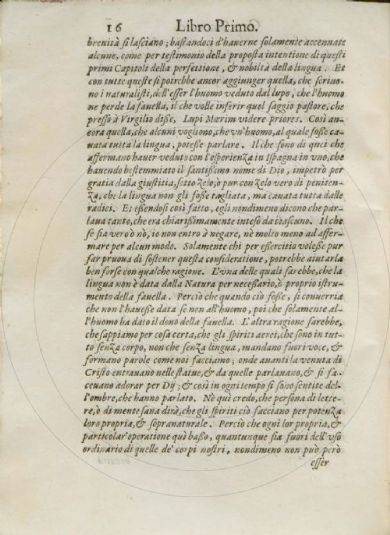 16 Libro Primo.
brenità si lasciano; bastandoci d'hauerne solamente accennate
alcune, come per testimonio della proposta intentione di questi
primi Capitoli della perfettione, & nobiltà della lingua. Et
con tutte queste si potrebbe ancor aggiunger quella, che scriuo
no i naturalisti, dell'esser l'huomo veduto dal lupo, che l'huomo
ne perde la fauella, il che volle inferir quel saggio pastore, che
presso à Virgilio disse, Lupi Mœrim videre priores. Così an-
cora quella, che alcuni vogliono, che vn'huomo, al quale fosse ca-
uata tutta la lingua, potesse parlare. Il che sono di quei che
affermano hauer veduto con l'esperienza in Ispagna in vno, che
hauendo bestemmiato il santissimo nome di Dio, impetrò per
gratia dalla giustitia, fatto zelo, ò pur con zelo vero di peniten-
za, che la lingua non gli fosse tagliata, ma cauata tutta dalle
radici. Et essendosi così fatto, egli nondimeno dicono che par-
laua tanto, che era chiarissimamente inteso da ciascuno. Il che
se sia vero ò nò, io non entro à negare, nè molto meno ad affer-
mare per alcun modo. Solamente chi per essercitio volesse pur
far pruoua di sostener questa consideratione, potrebbe aiutarla
ben forse con qualche ragione. L'vna delle quali sarebbe, che la
lingua non è data dalla Natura per necessario, ò proprio istru-
mento della fauella. Perciò che quando ciò fosse, si conuerria
che non l'hauesse data se non all'huomo, poi che solamente al-
l'huomo ha dato il dono della fauella. L'altra ragione sarebbe,
che sappiamo per cosa certa, che gli spiriti aerei, che sono in tut-
to senza corpo, non che senza lingua, mandano fuori voce, &
formano parole come noi facciamo; onde auanti la venuta di
Cristo entrauano nelle statue, & da quelle parlauano, & si fa-
ceuano adorar per Dij; & così in ogni tempo si sono sentite del-
l'ombre, che hanno parlato. Nè quì credo, che persona di lette-
re, ò di mente sana dirà, che gli spiriti ciò facciano per potenza
loro propria, & sopranaturale. Perciò che ogni lor propria, &
particolar'operatione quì basso, quantunque sia fuori dell'vso
ordinario di quelle de' corpi nostri, nondimeno non può però
esser